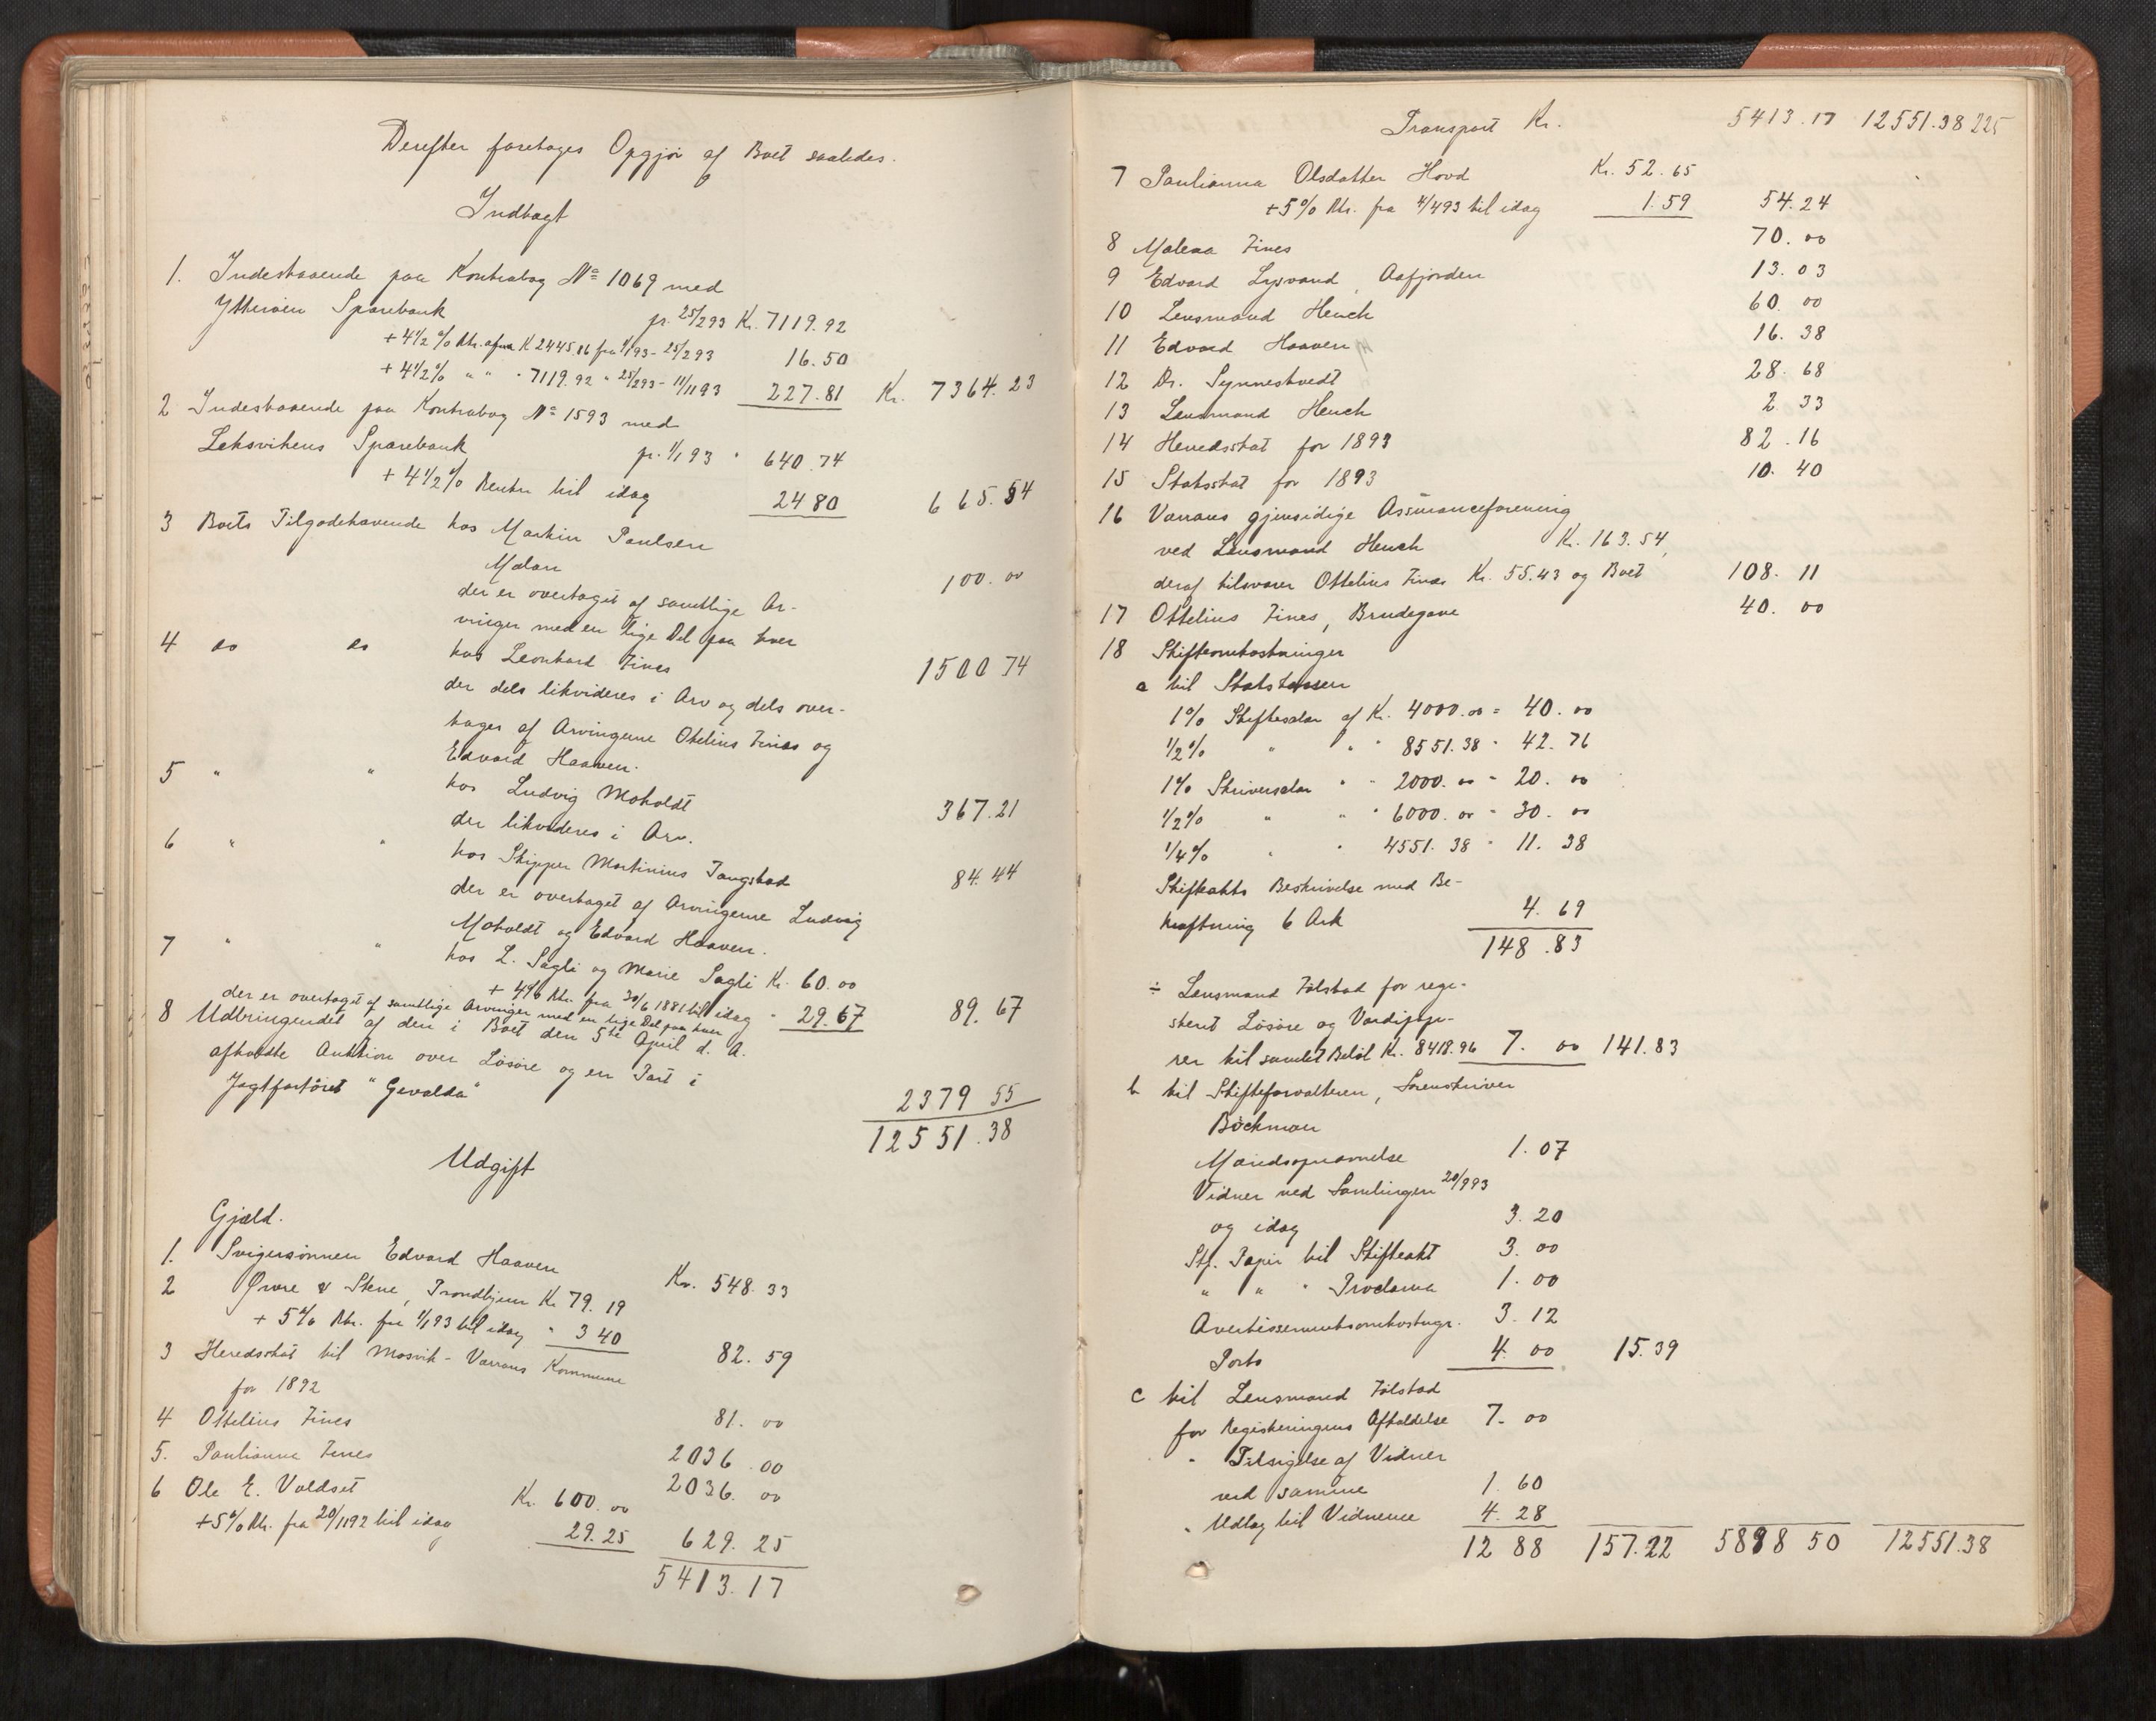 Derefter foretages Opgjör af Boet saaledes.
Indtægt
1. Indestaaende paa Kontrabog № 1069 med
Ytteröen Sparebank pr. 25/2 93 Kr. 7119.92
+ 4 1/2 % Rtr. af Kr. 2445.16 fra 1/1 93 - 25/2 93 16.50
+ 4 1/2 % " " " 7119.92 " 25/2 93 - 11/11 93 227.81 Kr. 7364.23
2 Indestaaende paa Kontrabog № 1593 med
Leksvikens Sparebank pr. 1/1 93 " 640.74
+ 4 1/2 % Renter til idag 24 80 665.54
3 Boets Tilgodehavende hos Martin Paulsen
Mælan 100.00
der er overtaget af samtlige Ar-
vinger med en lige Del paa hver
4 do do hos Leonhard Finæs 1500 74
der dels likvideres i Arv og dels over-
tages af Arvingerne Otelius Finæs og
Edvard Haaven.
5 " " hos Ludvig Moholdt 367.21
der likvideres i Arv.
6 " " hos Skipper Martinius Tangstad 84.44
der er overtaget af Arvingerne Ludvig
Moholdt og Edvard Haaven.
7 " " hos L. Sagli og Marie Sagli Kr. 60.00
+ 4 % Rtr. fra 30/6 1881 til idag " 29.67 89.67
der er overtaget af samtlige Arvinger med en lige Del paa hver
8 Udbringendet af den i Boet den 5te April d. A.
afholdte Auktion over Lösöre og en Part i
Jagtfartöiet "Gevalda" 2379 55
12551.38
Udgift
Gjæld.
1. Svigersönnen Edvard Haaven Kr. 548.33
2 Øwre & Stene, Trondhjem Kr. 79.19
+ 5 % Rtr. fra 1/1 93 til idag " 3 40 82.59
3 Heredsskat til Mosvik-Værrans Kommune
for 1892 81.00
4 Ottelius Finæs 2036.00
5. Paulianna Finæs 2036.00
6 Ole E. Voldset Kr. 600.00
+ 5 % Rtr. fra 20/11 92 til idag 29.25 629.25
5413.17
Transport Kr. 5413.17 12551.38 225
7 Paulianna Olsdatter Hovd Kr. 52.65
+ 5 % Rtr. fra 4/4 93 til idag 1.59 54.24
8 Malena Finæs 70.00
9 Edvard Lysvand, Aafjorden 13.03
10 Lensmand Hench 60.00
11 Edvard Haaven 16.38
12 Dr. Synnestvedt 28.68
13 Lensmand Hench 2.33
14 Heredsskat for 1893 82.16
15 Statsskat for 1893 10.40
16 Værrans gjensidige Assuranceforening
ved Lensmand Hench Kr. 163.54,
deraf tilsvarer Ottelius Finæs Kr. 55.43 og Boet 108.11
17 Ottelius Finæs, Brudegave 40.00
18 Skifteomkostninger
a til Statskassen
1 % Skiftesalær af Kr. 4000.00 = 40.00
1/2 % " " " 8551.38 " 42.76
1 % Skriversalær " " 2000.00 " 20.00
1/2 % " " " 6000.00 " 30.00
1/4 % " " 4551.38 " 11.38
Skifteakts Beskrivelse med Be-
kræftning 6 Ark 4.69
148.83
÷ Lensmand Fölstad for regi-
streret Lösöre og Værdipapi-
rer til samlet Belöb Kr. 8418.96 7.00 141.83
b til Skifteforvalteren, Sorenskriver
Böckman
Mændsopnævnelse 1.07
Vidner ved Samlingen 20/9 93
og idag 3.20
Stf. Papir til Skifteakt 3.00
" " " Proclama 1.00
Avertissementsomkostngr. 3.12
Porto 4.00 15.39
c til Lensmand Fölstad
for Registreringens Afholdelse 7.00
" Tilsigelse af Vidner
ved samme 1.60
" Udlæg til Vidnerne 4.28
12 88 157.22 5898 50 12551.38